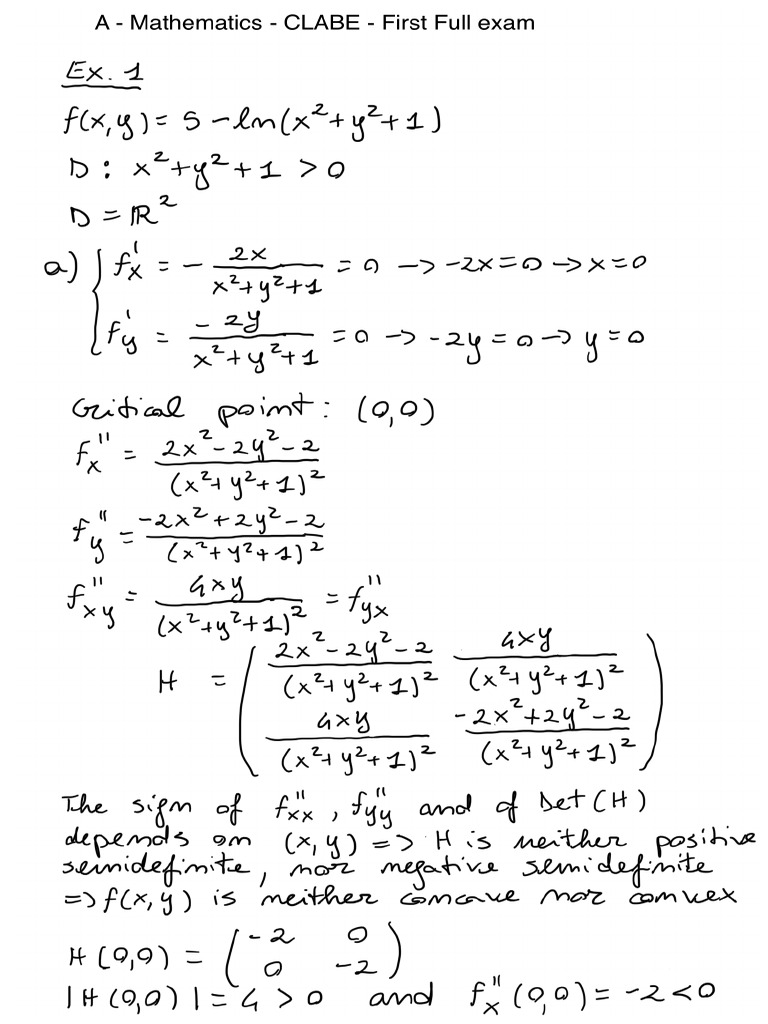 A - Mathematics - CLABE - First Full exam
Ex. 1
f(x,y) = 5 - ln(x²+y²+1)
D: x²+y²+1 > 0
D = ℝ²
a) { f'x = - 2x/(x²+y²+1) = 0 -> -2x=0 -> x=0
f'y = -2y/(x²+y²+1) = 0 -> -2y=0 -> y=0
Critical point: (0,0)
f''x = (2x²-2y²-2)/(x²+y²+1)²
f''y = (-2x²+2y²-2)/(x²+y²+1)²
f''xy = 4xy/(x²+y²+1)² = f''yx
H = ( (2x²-2y²-2)/(x²+y²+1)² 4xy/(x²+y²+1)²
4xy/(x²+y²+1)² (-2x²+2y²-2)/(x²+y²+1)² )
The sign of f''xx, f''yy and of Det(H)
depends on (x,y) => H is neither positive
semidefinite, nor negative semidefinite
=> f(x,y) is neither concave nor convex
H(0,0) = ( -2 0
0 -2 )
|H(0,0)| = 4 > 0 and f''x(0,0) = -2 < 0